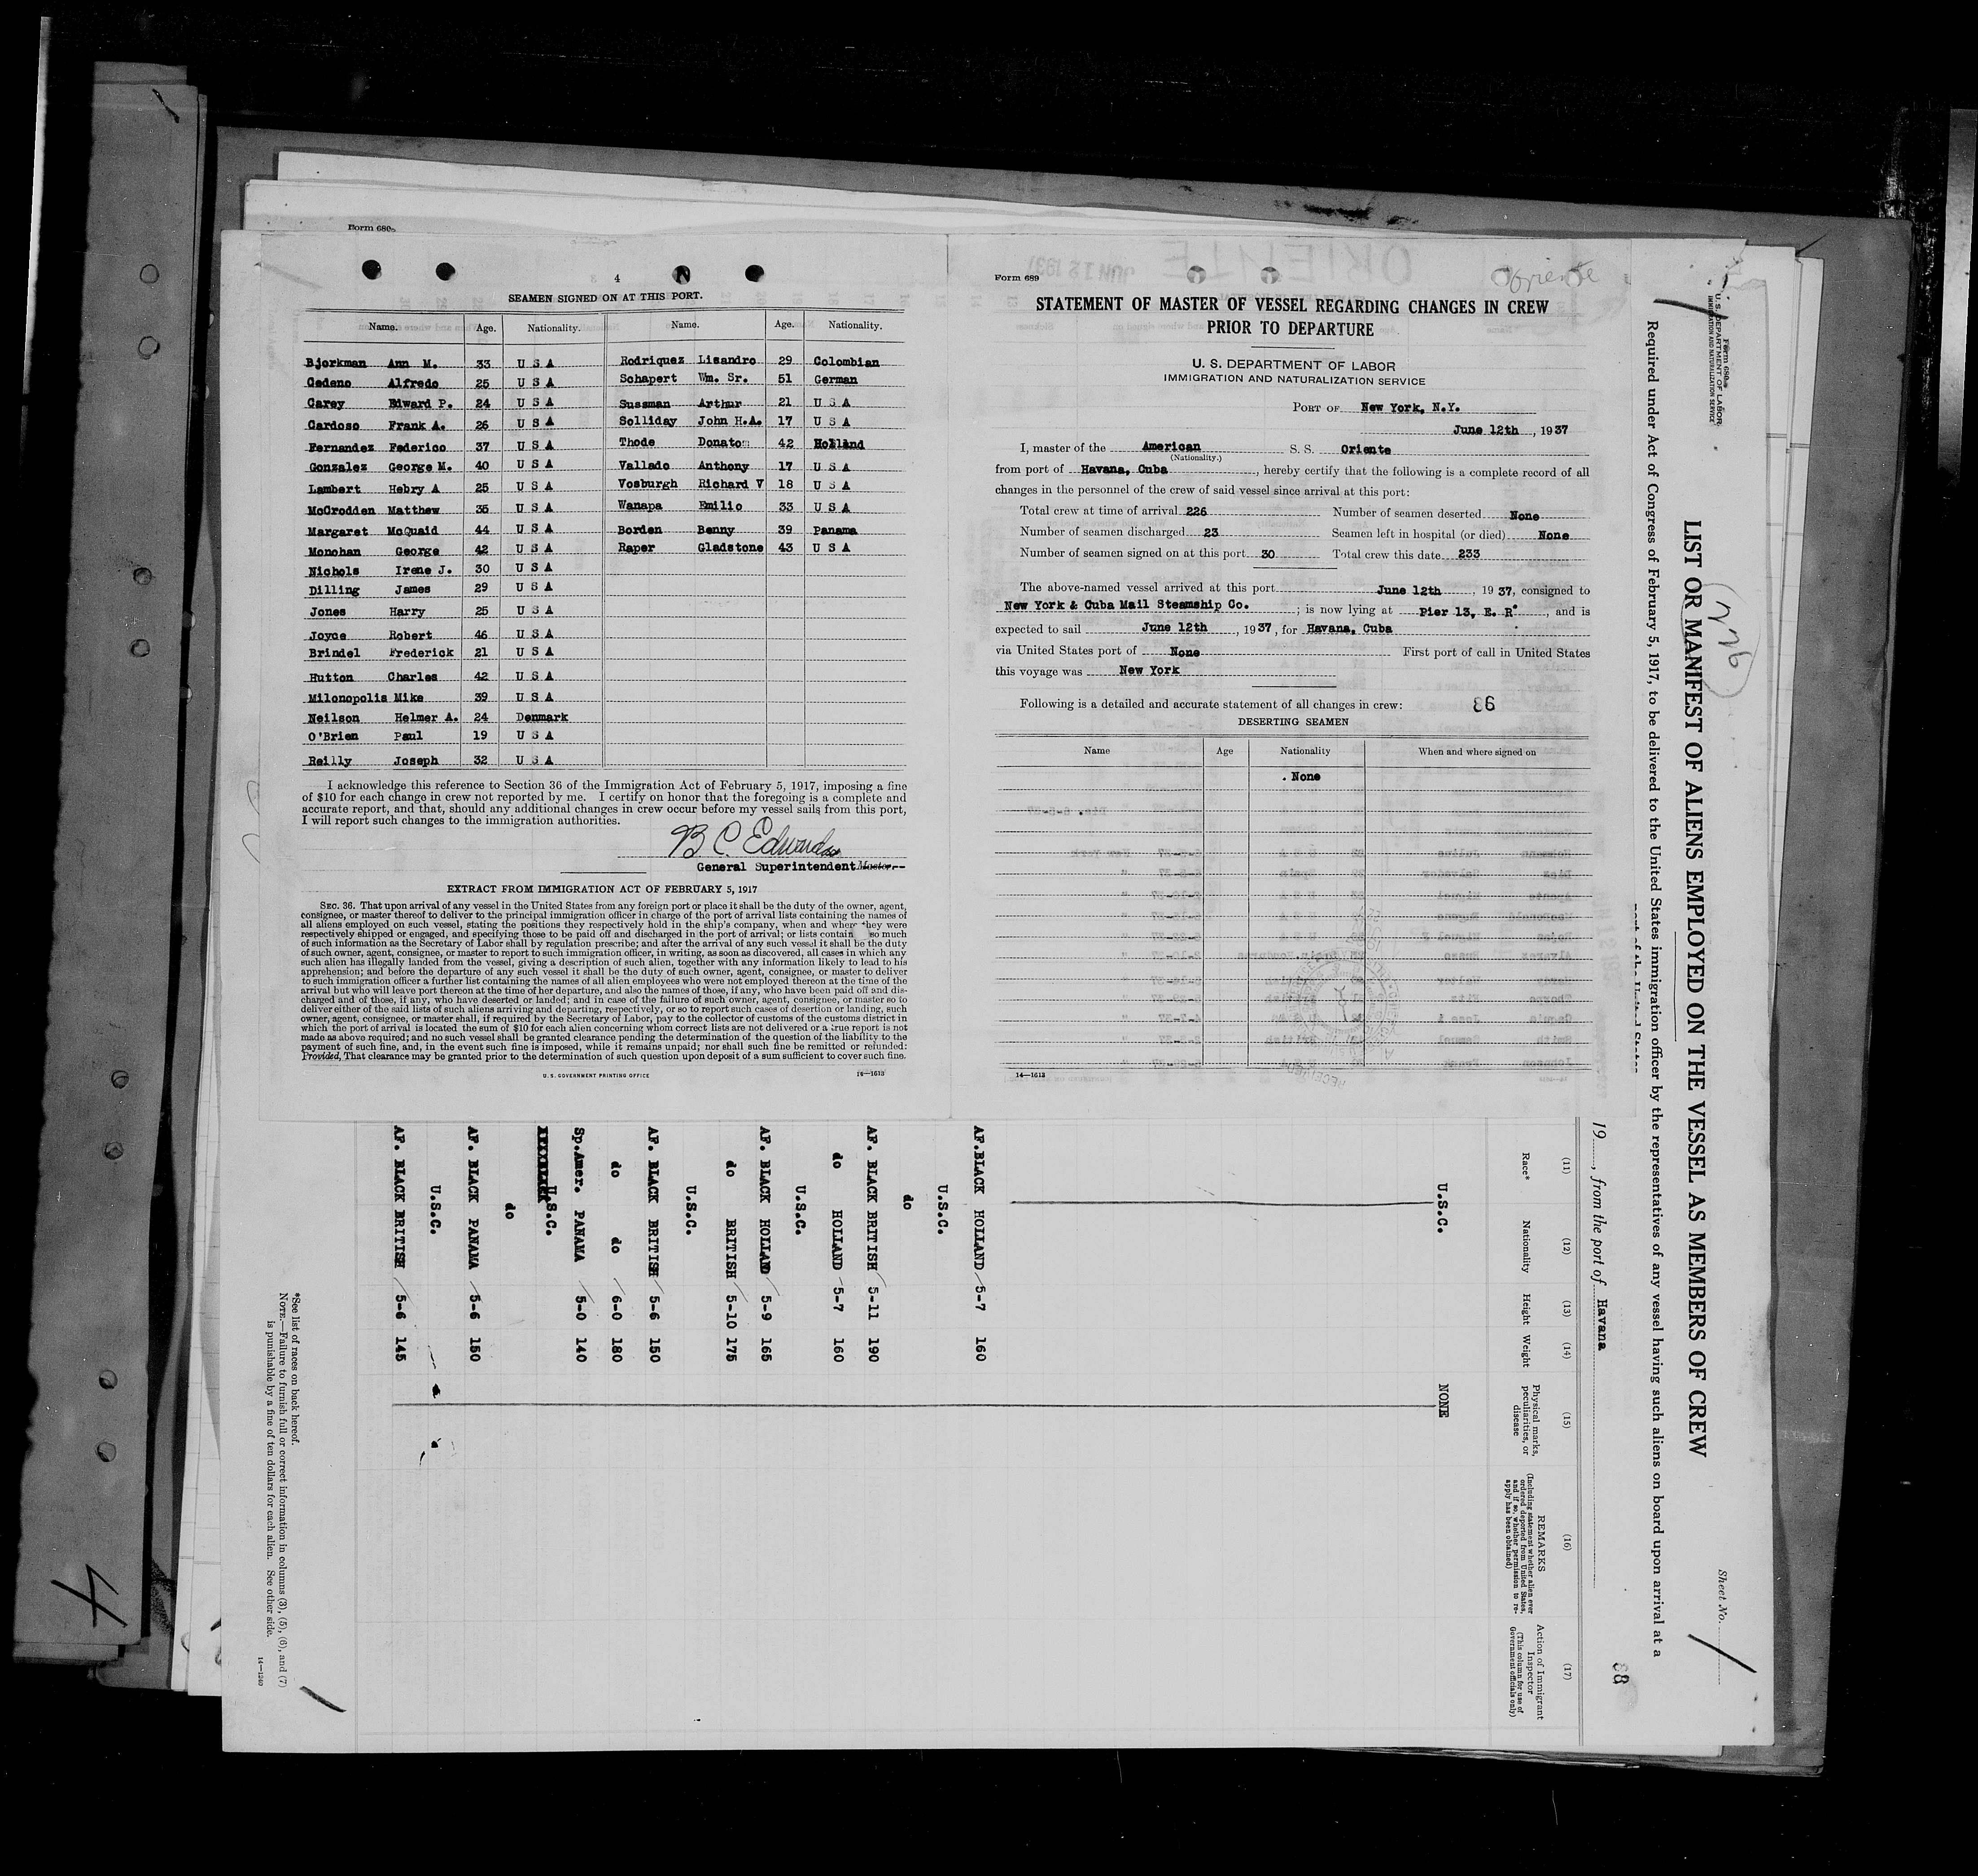 Form 680
4
SEAMEN SIGNED ON AT THIS PORT.
Name. Age. Nationality. Name. Age. Nationality.
Bjorkman Ann M. 33 U S A Rodriquez Lisandro 29 Colombian
Cedeno Alfredo 25 U S A Schapert Wm. Sr. 51 German
Carey Edward P. 24 U S A Sussman Arthur 21 U S A
Cardoso Frank A. 26 U S A Solliday John H.A. 17 U S A
Fernandez Federico 37 U S A Thode Donato 42 Holland
Gonzalez George M. 40 U S A Vallado Anthony 17 U S A
Lambert Hebry A 25 U S A Vosburgh Richard V 18 U S A
McCrodden Matthew 35 U S A Wanapa Emilio 33 U S A
Margaret McQuaid 44 U S A Borden Benny 39 Panama
Monohan George 42 U S A Raper Gladstone 43 U S A
Nichols Irene J. 30 U S A
Dilling James 29 U S A
Jones Harry 25 U S A
Joyce Robert 46 U S A
Brindel Frederick 21 U S A
Hutton Charles 42 U S A
Milonopolis Mike 39 U S A
Neilson Helmer A. 24 Denmark
O'Brien Paul 19 U S A
Reilly Joseph 32 U S A
I acknowledge this reference to Section 36 of the Immigration Act of February 5, 1917, imposing a fine
of $10 for each change in crew not reported by me. I certify on honor that the foregoing is a complete and
accurate report, and that, should any additional changes in crew occur before my vessel sails from this port,
I will report such changes to the immigration authorities.
B C Edwards
General Superintendent Master
EXTRACT FROM IMMIGRATION ACT OF FEBRUARY 5, 1917
SEC. 36. That upon arrival of any vessel in the United States from any foreign port or place it shall be the duty of the owner, agent,
consignee, or master thereof to deliver to the principal immigration officer in charge of the port of arrival lists containing the names of
all aliens employed on such vessel, stating the positions they respectively hold in the ship's company, when and where they were
respectively shipped or engaged, and specifying those to be paid off and discharged in the port of arrival; or lists contain so much
of such information as the Secretary of Labor shall by regulation prescribe; and after the arrival of any such vessel it shall be the duty
of such owner, agent, consignee, or master to report to such immigration officer, in writing, as soon as discovered, all cases in which any
such alien has illegally landed from the vessel, giving a description of such alien, together with any information likely to lead to his
apprehension; and before the departure of any such vessel it shall be the duty of such owner, agent, consignee, or master to deliver
to such immigration officer a further list containing the names of all alien employees who were not employed thereon at the time of the
arrival but who will leave port thereon at the time of her departure, and also the names of those, if any, who have been paid off and dis-
charged and of those, if any, who have deserted or landed; and in case of the failure of such owner, agent, consignee, or master so to
deliver either of the said lists of such aliens arriving and departing, respectively, or so to report such cases of desertion or landing, such
owner, agent, consignee, or master shall, if required by the Secretary of Labor, pay to the collector of customs of the customs district in
which the port of arrival is located the sum of $10 for each alien concerning whom correct lists are not delivered or a true report is not
made as above required; and no such vessel shall be granted clearance pending the determination of the question of the liability to the
payment of such fine, and, in the event such fine is imposed, while it remains unpaid; nor shall such fine be remitted or refunded:
Provided, That clearance may be granted prior to the determination of such question upon deposit of a sum sufficient to cover such fine.
U. S. GOVERNMENT PRINTING OFFICE 14—1613
Form 689
Oriente
STATEMENT OF MASTER OF VESSEL REGARDING CHANGES IN CREW
PRIOR TO DEPARTURE
U. S. DEPARTMENT OF LABOR
IMMIGRATION AND NATURALIZATION SERVICE
PORT OF New York, N.Y.
June 12th, 1937
I, master of the American S. S. Oriente
(Nationality.)
from port of Havana, Cuba, hereby certify that the following is a complete record of all
changes in the personnel of the crew of said vessel since arrival at this port:
Total crew at time of arrival 226 Number of seamen deserted None
Number of seamen discharged 23 Seamen left in hospital (or died) None
Number of seamen signed on at this port 30 Total crew this date 233
The above-named vessel arrived at this port June 12th, 1937, consigned to
New York & Cuba Mail Steamship Co.; is now lying at Pier 13, E. R., and is
expected to sail June 12th, 1937, for Havana, Cuba
via United States port of None First port of call in United States
this voyage was New York
Following is a detailed and accurate statement of all changes in crew: 86
DESERTING SEAMEN
Name Age Nationality When and where signed on
None
14—1613
Form 680
U. S. DEPARTMENT OF LABOR
IMMIGRATION AND NATURALIZATION SERVICE
Sheet No.
226
LIST OR MANIFEST OF ALIENS EMPLOYED ON THE VESSEL AS MEMBERS OF CREW
Required under Act of Congress of February 5, 1917, to be delivered to the United States immigration officer by the representatives of any vessel having such aliens on board upon arrival at a
port of the United States
88
19, from the port of Havana
(11) (12) (13) (14) (15) (16) (17)
Race* Nationality Height Weight Physical marks, peculiarities, or disease REMARKS (Including statement whether alien ever ordered deported from United States, and if so, whether permission to reapply has been obtained) Action of Immigrant Inspector (This column for use of Government officials only)
U.S.C. NONE
AF. BLACK HOLLAND 5-7 160
U.S.C.
do
AF. BLACK BRITISH 5-11 190
do HOLLAND 5-7 160
U.S.C.
AF. BLACK HOLLAND 5-9 165
do BRITISH 5-10 175
U.S.C.
AF. BLACK BRITISH 5-6 150
do do 6-0 180
Sp.Amer. PANAMA 5-0 140
U.S.C.
do
AF. BLACK PANAMA 5-6 150
U.S.C.
AF. BLACK BRITISH 5-6 145
*See list of races on back hereof.
NOTE.—Failure to furnish full or correct information in columns (3), (5), (6), and (7)
is punishable by a fine of ten dollars for each alien. See other side.
14—1240